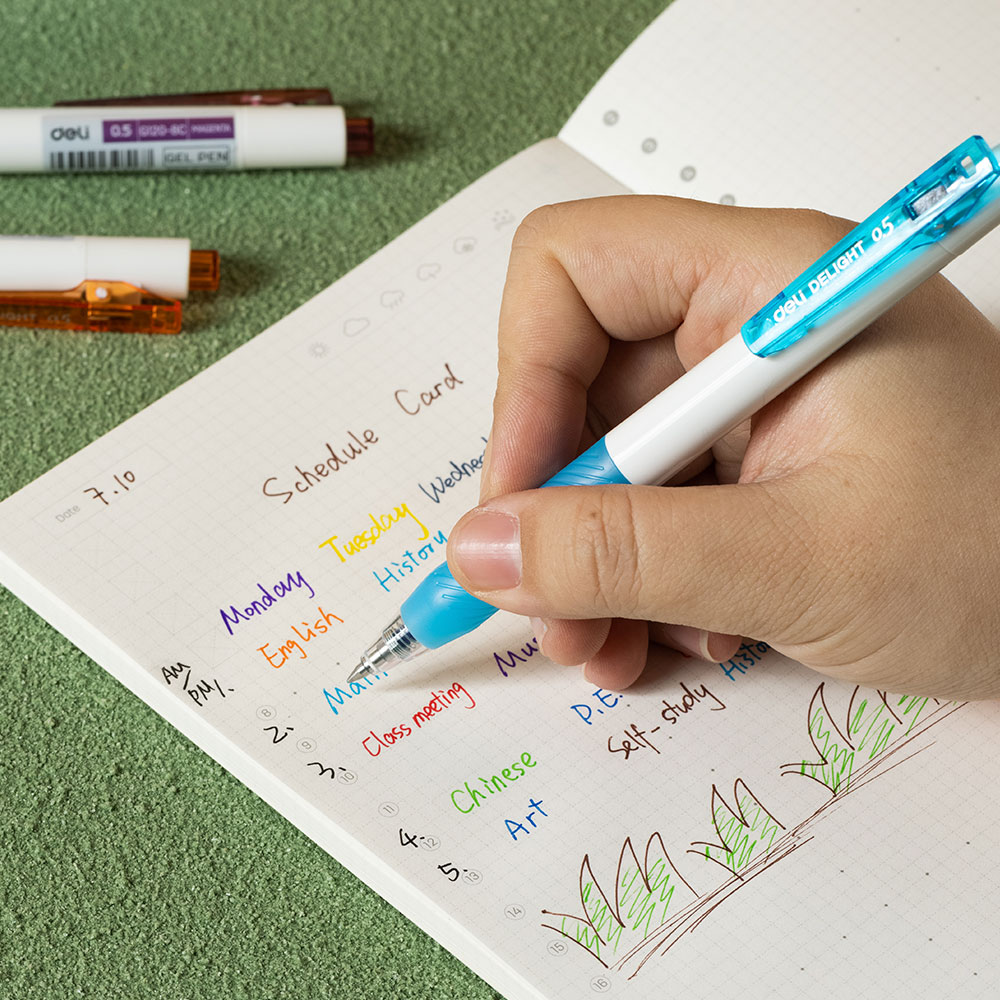 deli 0.5 G120-BC MAGENTA
GEL PEN
deli DELIGHT 0.5
Date 7.10
Schedule Card
Monday Tuesday
English History
AM/PM
2.
Class meeting
P.E.
3.
Self-study
Chinese
4.
Art
5.
8
9
10
11
12
13
14
15
16